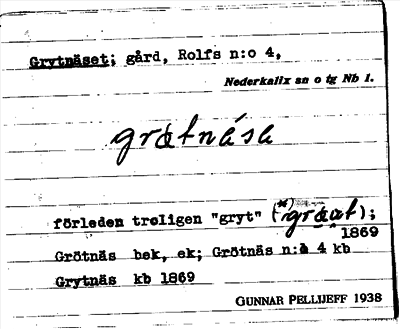 Grytnäset; gård, Rolfs n:o 4,
Nederkalix sn o tg Nb l.
grøtnésa
förleden troligen "gryt" (*)grøut);
1869
Grötnäs bek, ek; Grötnäs n:o 4 kb
Grytnäs kb 1869
GUNNAR PELLIJEFF 1938